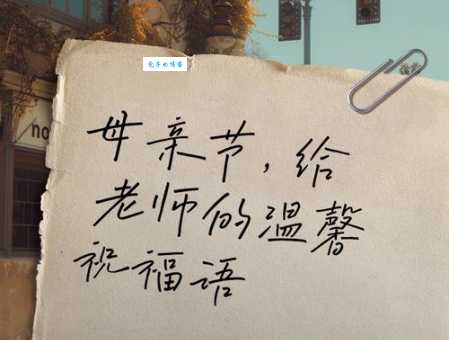 包子的博客
no
母亲节，给
老师的温馨
祝福语